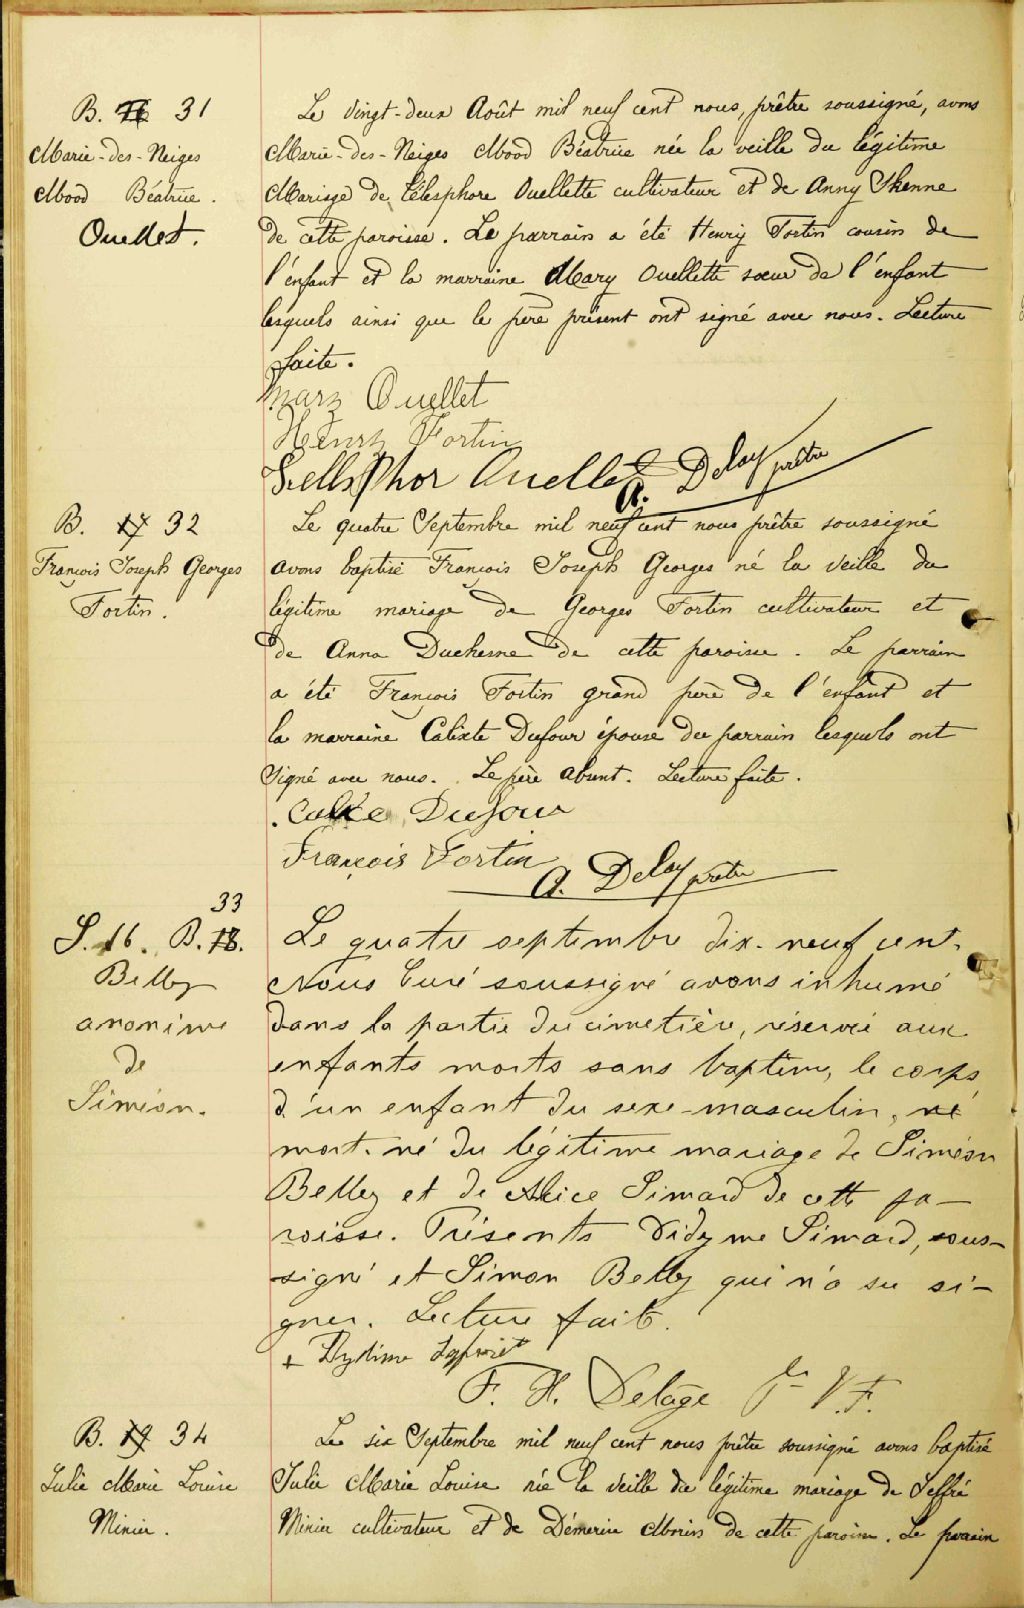 B. 31
Marie-des-Neiges
Mood Béatrice.
Ouellet.
Le vingt-deux Août mil neuf cent nous, prêtre soussigné, avons
Marie-des-Neiges Mood Béatrice née la veille du légitime
Mariage de Télesphore Ouellette cultivateur et de Anny Skenne
de cette paroisse. Le parrain a été Henry Fortin cousin de
l'enfant et la marraine Mary Ouellette sœur de l'enfant
lesquels ainsi que le père présent ont signé avec nous. Lecture
faite.
Mary Ouellet
Henry Fortin
Tellsphor Ouellet
A. Delay prêtre
B. 17 32
François Joseph Georges
Fortin.
Le quatre Septembre mil neuf cent nous prêtre soussigné
avons baptisé François Joseph Georges né la veille du
légitime mariage de Georges Fortin cultivateur et
de Anna Duchesne de cette paroisse. Le parrain
a été François Fortin grand père de l'enfant et
la marraine Calixte Dufour épouse du parrain lesquels ont
signé avec nous. Le père absent. Lecture faite.
Dufour
François Fortin
A. Delay prêtre
33
S. 16. B. 18.
Belley
anonime
de
Siméon.
Le quatre septembre dix-neuf cent.
Nous Curé soussigné avons inhumé
dans la partie du cimetière, réservée aux
enfants morts sans baptême, le corps
d'un enfant du sexe-masculin, né
mort-né du légitime mariage de Siméon
Belley et de Alice Simard de cette pa-
roisse. Présents Didyme Simard, sous-
signé et Simon Belley qui n'a su si-
gner. Lecture faite.
+ Dydime
F. H. Delâge Ptre V.F.
B. 19 34
Julie Marie Louise
Minier.
Le six Septembre mil neuf cent nous prêtre soussigné avons baptisé
Julie Marie Louise née la veille du légitime mariage de Jeffré
Minier cultivateur et de Démerise Morin de cette paroisse. Le parrain